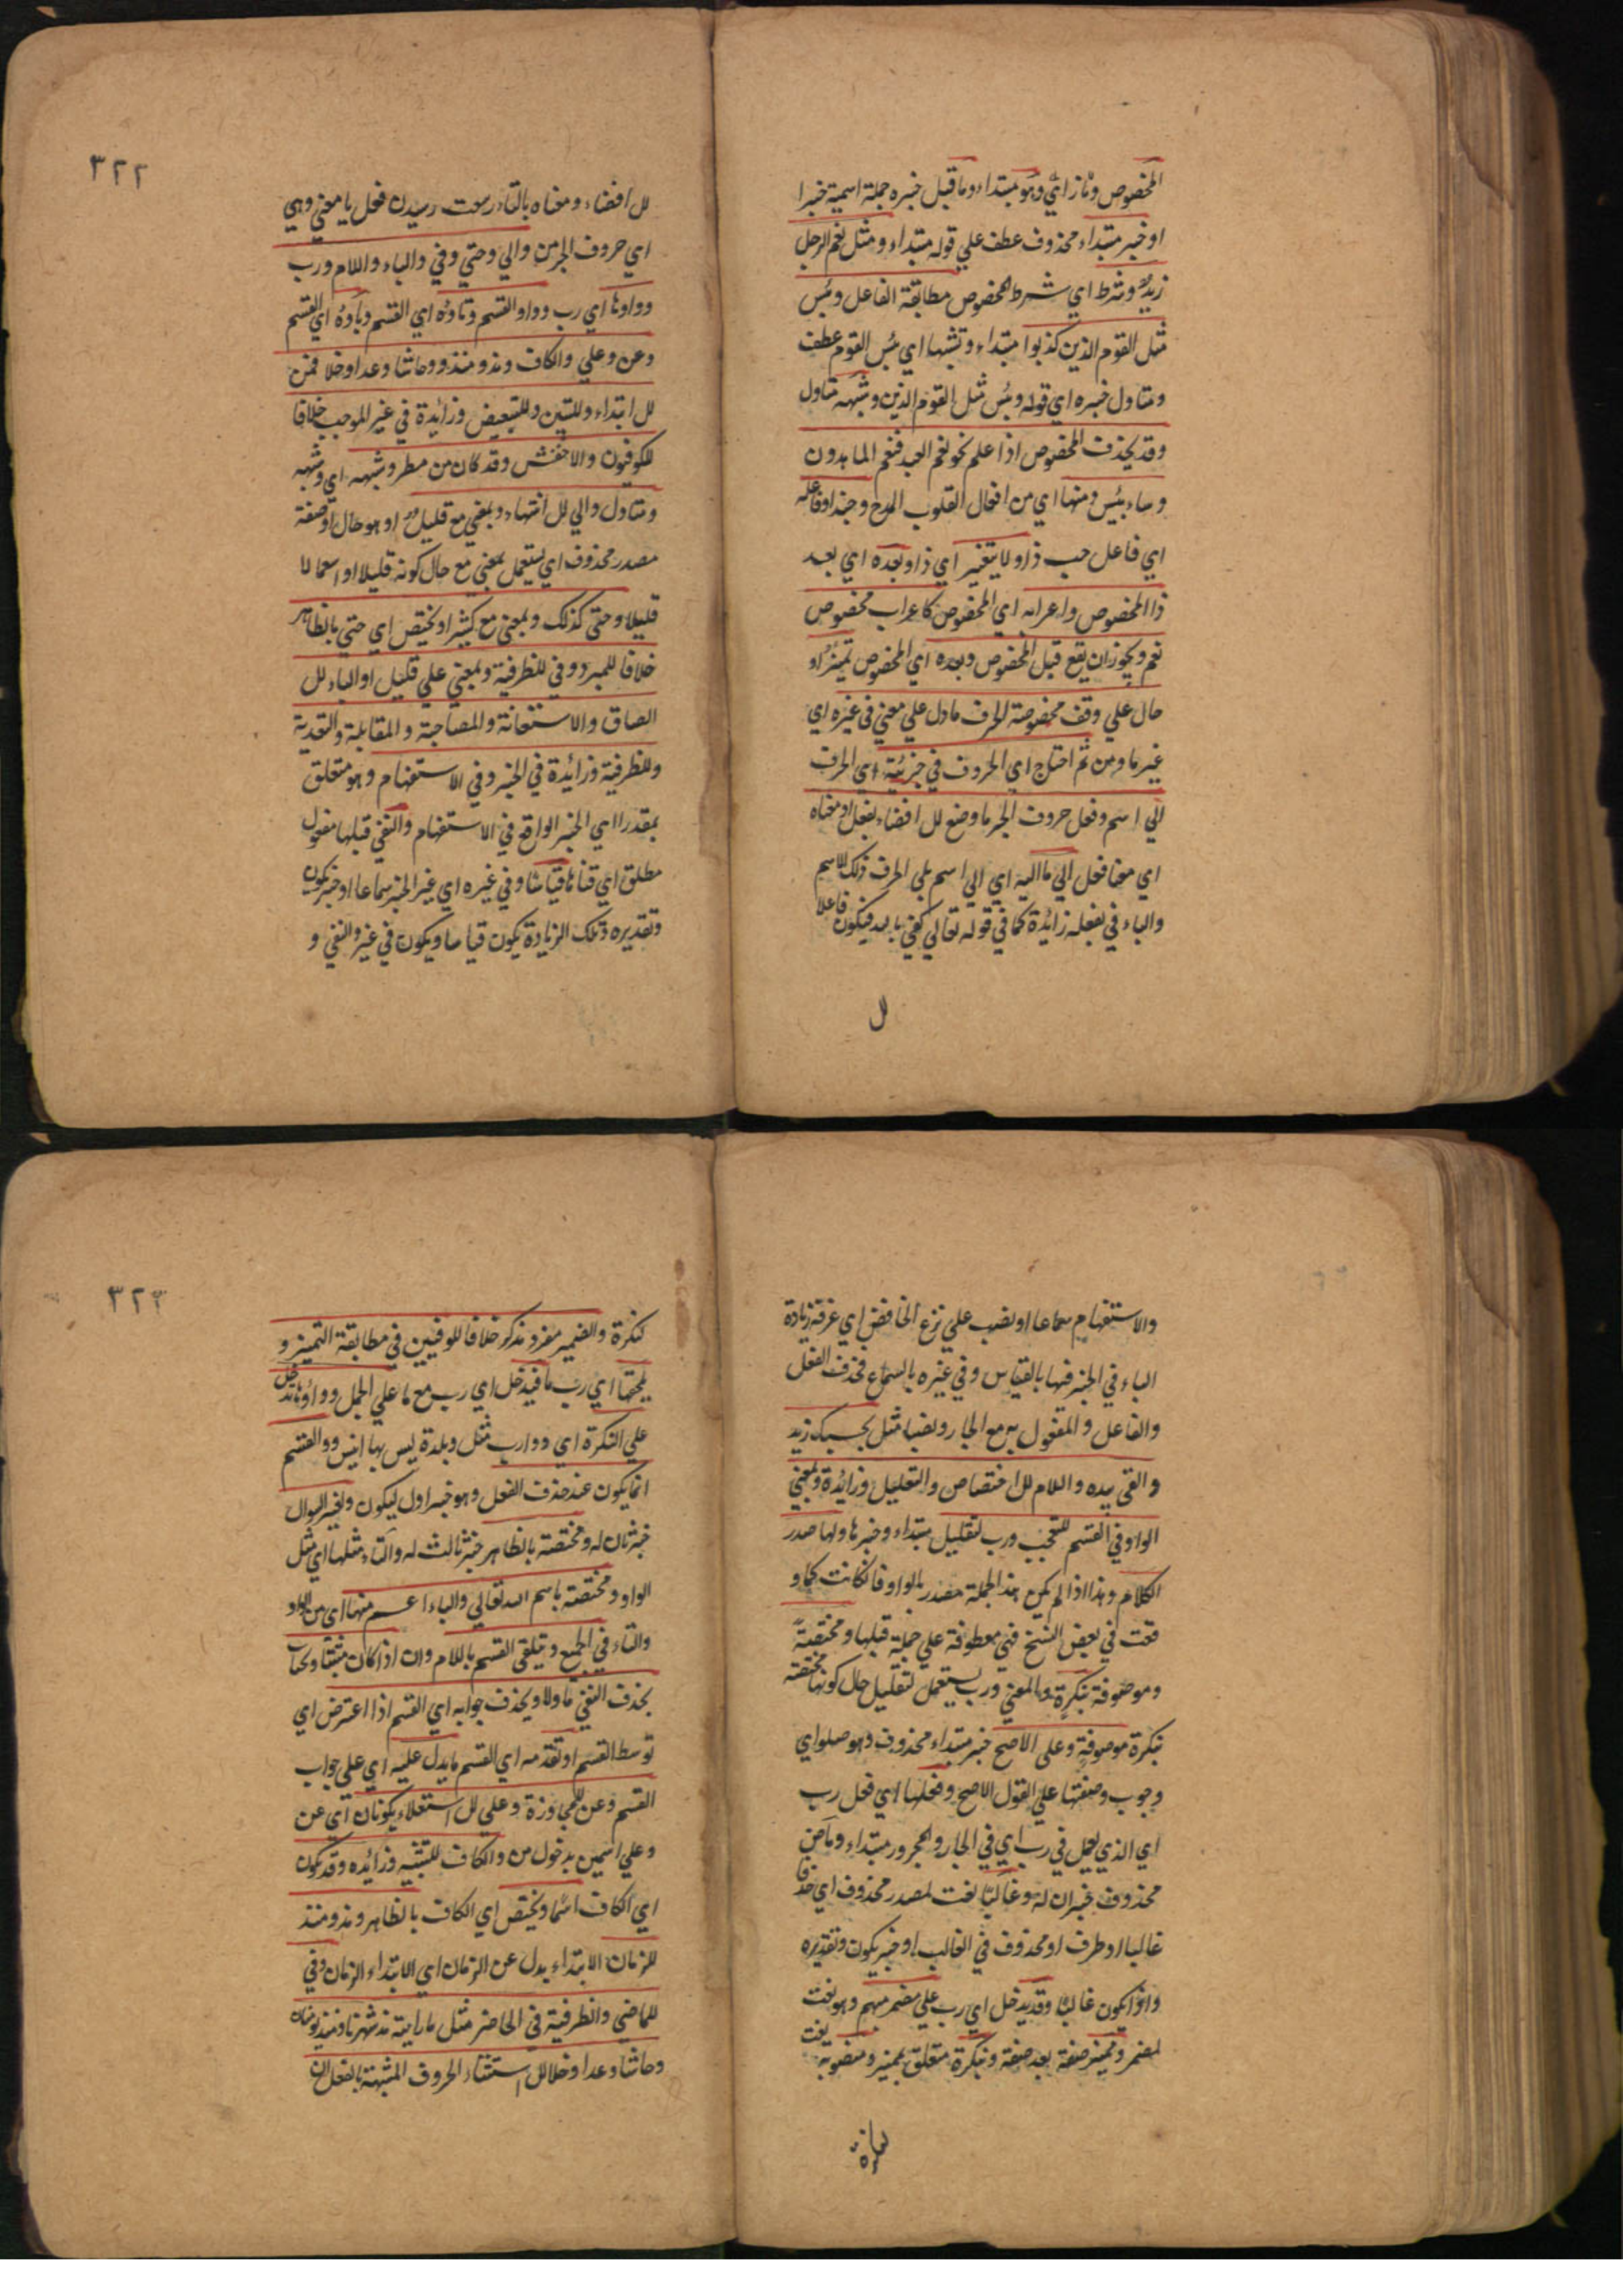 المخصوص وثاز اي وهو مبتداء وما قبل خبره جملة اسمية خبرا
او خبر مبتداء محذوف عطف علي قوله مبتداء ومثل نعم الرجل
زيد وشرط اي شرط المخصوص مطابقة الفاعل وبئس
مثل القوم الذين كذبوا مبتداء وشبهها اي بئس القوم عطف
ومتاول خبره اي قوله وبئس مثل القوم الذين وشبهه متاول
وقد يحذف المخصوص اذا علم نحو نعم العبد فنعم الماهدون
وساء بئس ومنها اي من افعال القلوب المدح وحبذا وفاعله
اي فاعل حب ذا ولا يتغير اي ذا وبعده اي بعد
ذا المخصوص واعرابه اي المخصوص كاعراب مخصوص
نعم ويجوز ان يقع قبل المخصوص وبعده اي المخصوص تميز او
حال علي وقف مخصوصة الحرف ما دل علي معني في غيره اي
غير ما ومن ثم احتاج اي الحروف في جزئية اي الحرف
الي اسم وفعل حروف الجر ما وضع لل افضاء بفعل او معناه
اي معنا فعل الي ما اليه اي الي اسم يلي الحرف ذلك الاسم
والباء في بفعله زائدة كما في قوله تعالي كفي بالله فيكون فاعلا
لل
٣٢٢
لل افضاء ومعناه بالتاء رسيدن فعل يا معني وهي
اي حروف الجر من والي وحتي وفي والباء واللام ورب
وواوها اي رب وواو القسم وتاؤه اي القسم وباؤه اي القسم
وعن وعلي والكاف ومذ ومنذ وحاشا وعدا وخلا فمن
لل ابتداء وللتبين وللتبعيض وزائدة في غير الموجب خلافا
للكوفيون والاخفش وقد كان من مطر وشبهه اي وشبهه
ومتاول والي لل انتهاء وبمعني مع قليل او هو حال او صفة
مصدر محذوف اي يستعمل بمعني مع حال كونه قليلا او استعمالا
قليلا وحتي كذلك وبمعني مع كثيرا ويختص اي حتي بالظاهر
خلافا للمبرد وفي للظرفية وبمعني علي قليل او الباء لل
الصاق والاستعانة والمصاحبة والمقابلة والتعدية
وللظرفية وزائدة في الخبر وفي الاستفهام وهو متعلق
بمقدر اي الخبر الواقع في الاستفهام والنفي قبلها مفعول
مطلق اي قياسا وفي غيره اي غير الخبر سماعا او خبر يكون
وتقديره وتلك الزيادة يكون قياسا ويكون في غير والنفي و
والاستفهام سماعا او نصب علي نزع الخافض اي عرفة زيادة
الباء في الخبر فيها بالقياس وفي غيره بالسماع فحذف الفعل
والفاعل والمفعول به مع الجار ونصبا مثل بحسبك زيد
والقي بيده واللام لل اختصاص والتعليل وزائدة وبمعني
الواو في القسم للتعجب ورب لتقليل مبتداء وخبر ها ولها صدر
الكلام وهذا اذا لم يكن هذ الجملة مصدر بالواو فانكانت كما و
قعت في بعض النسخ فهي معطوفة علي جملة قبلها ومختصة
وموصوفة بنكرة والمعني ورب يستعمل لتقليل حال كونها مختصة
بنكرة موصوفة وعلي الاصح خبر مبتداء محذوف وهو صلواي
وجوب وصفتها علي القول الاصح وفعلها اي فعل رب
اي الذي يعمل في رب اي في الجار والمجرور مبتداء وماض
محذوف خبران له وغالبا نعت لمصدر محذوف اي حذفا
غالبا او ظرف او محذوف في الغالب او خبر يكون وتقديره
واؤا يكون غالبا وقد يدخل اي رب علي مضمر مبهم وهو نعت
لمضمر ومميز صفة بعد صفة ونكرة متعلق بمميز ومنصوبة نعت
لنكرة
٣٢٣
لنكرة والضمير مفرد مذكر خلافا للوفيين في مطابقة التميز و
يلحقها اي رب ما فيدخل اي رب مع ما علي الجمل وواوها تدخل
علي النكرة اي وو ارب مثل وبلدة ليس بها انيس وو القسم
انما يكون عند حذف الفعل وهو خبر اول ليكون ولغير السوال
خبر ثان له ومختصة بالظاهر خبر ثالث له والتاء مثلها اي مثل
الواو ومختصة باسم الله تعالي والباء اعم منها اي من الواو
والتاء في الجميع ويتلقي القسم باللام وان اذا كان مثبتا ويجاب
بحذف النفي ما ولا ويحذف جوابه اي القسم اذا اعترض اي
توسط القسم او تقدمه اي القسم ما يدل عليه اي علي جواب
القسم وعن للمجاوزة وعلي لل استعلاء يكونان اي عن
وعلي اسمين بدخول من والكاف للتشبيه وزائده وقد يكون
اي الكاف اسما ويختص اي الكاف بالظاهر ومذ ومنذ
للزمان الابتداء بدل عن الزمان اي الابتداء الزمان وفي
للماضي والظرفية في الحاضر مثل ما رايته مذ شهرنا ومنذ يومنا
وحاشا وعدا وخلا لل استثناء الحروف المشبهة بالفعل ان